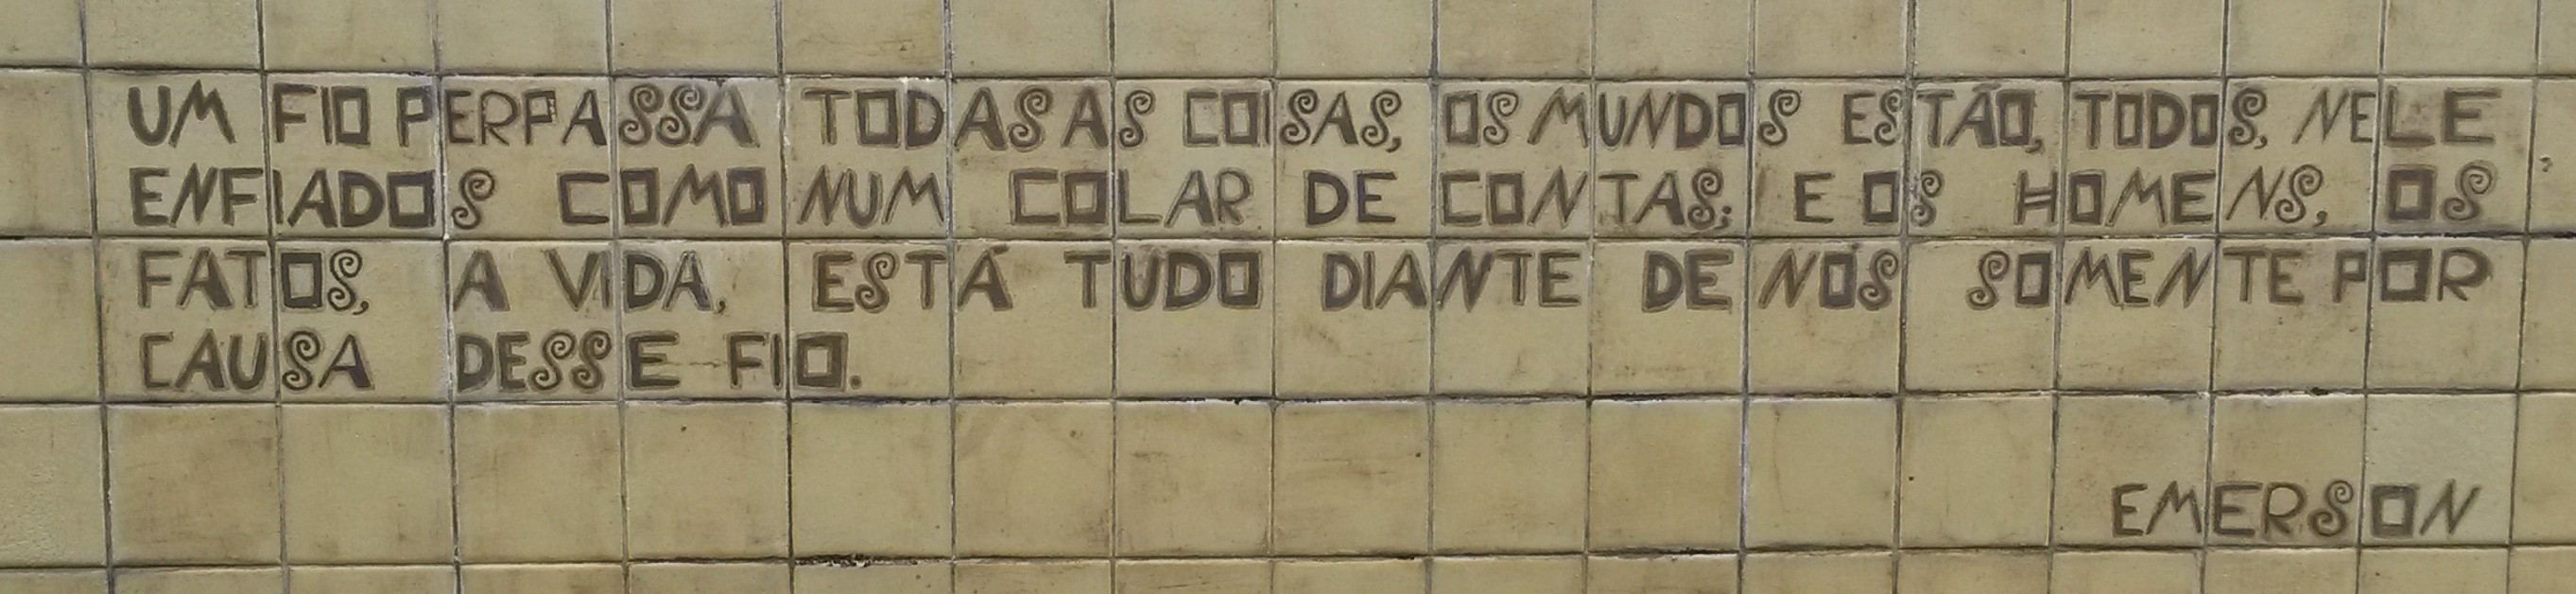 UM FIO PERPASSA TODAS AS COISAS, OS MUNDOS ESTÃO, TODOS, NELE
ENFIADOS COMO NUM COLAR DE CONTAS; E OS HOMENS, OS
FATOS, A VIDA, ESTÁ TUDO DIANTE DE NÓS SOMENTE POR
CAUSA DESSE FIO.
EMERSON